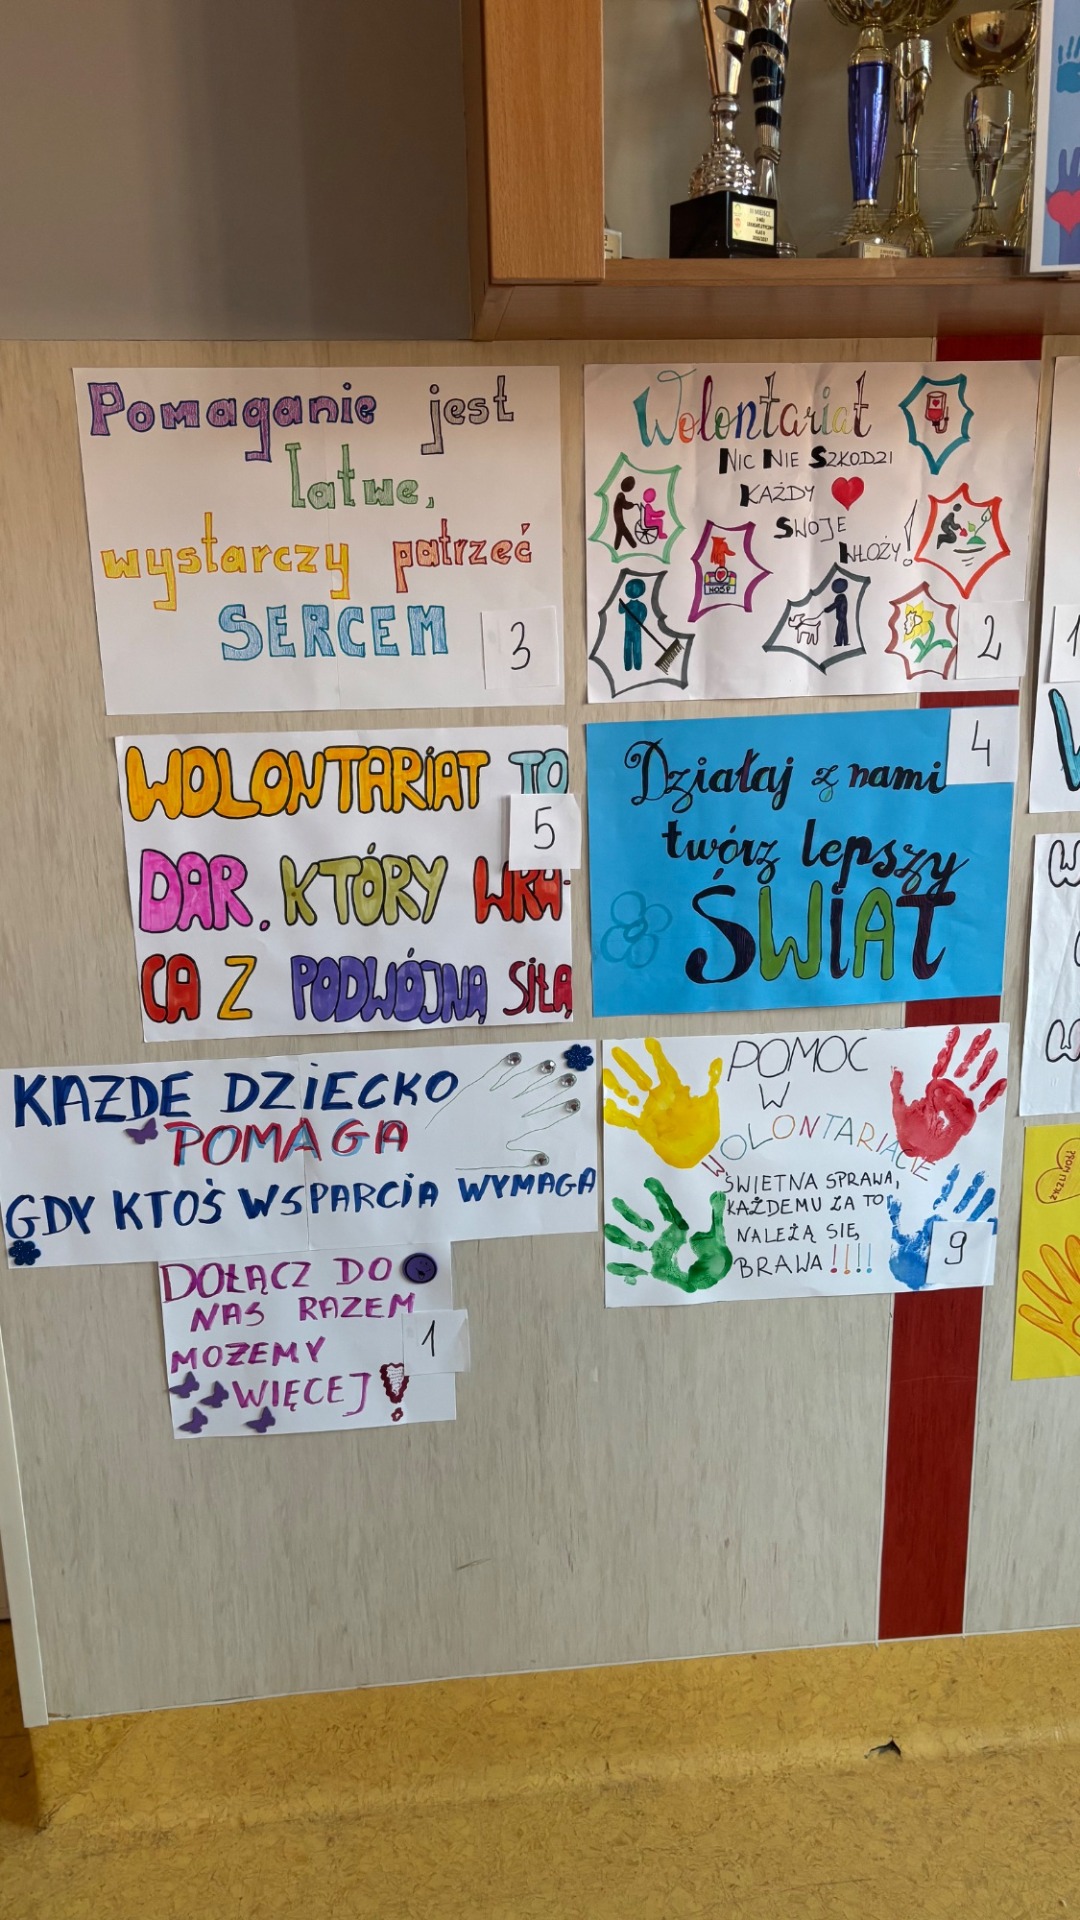 Pomaganie jest
łatwe,
wystarczy patrzeć
SERCEM
3
Wolontariat
NIC NIE SZKODZI
KAŻDY
SWOJE
WŁOŻY!
2
WOLONTARIAT TO
DAR, KTÓRY WRA-
CA Z PODWÓJNĄ SIŁĄ
5
Działaj z nami
twórz lepszy
ŚWIAT
4
KAŻDE DZIECKO
POMAGA
GDY KTOŚ WSPARCIA WYMAGA
DOŁĄCZ DO
NAS RAZEM
MOŻEMY
WIĘCEJ!
1
POMOC
W
WOLONTARIACIE
ŚWIETNA SPRAWA,
KAŻDEMU ZA TO
NALEŻĄ SIĘ
BRAWA!!!!
9